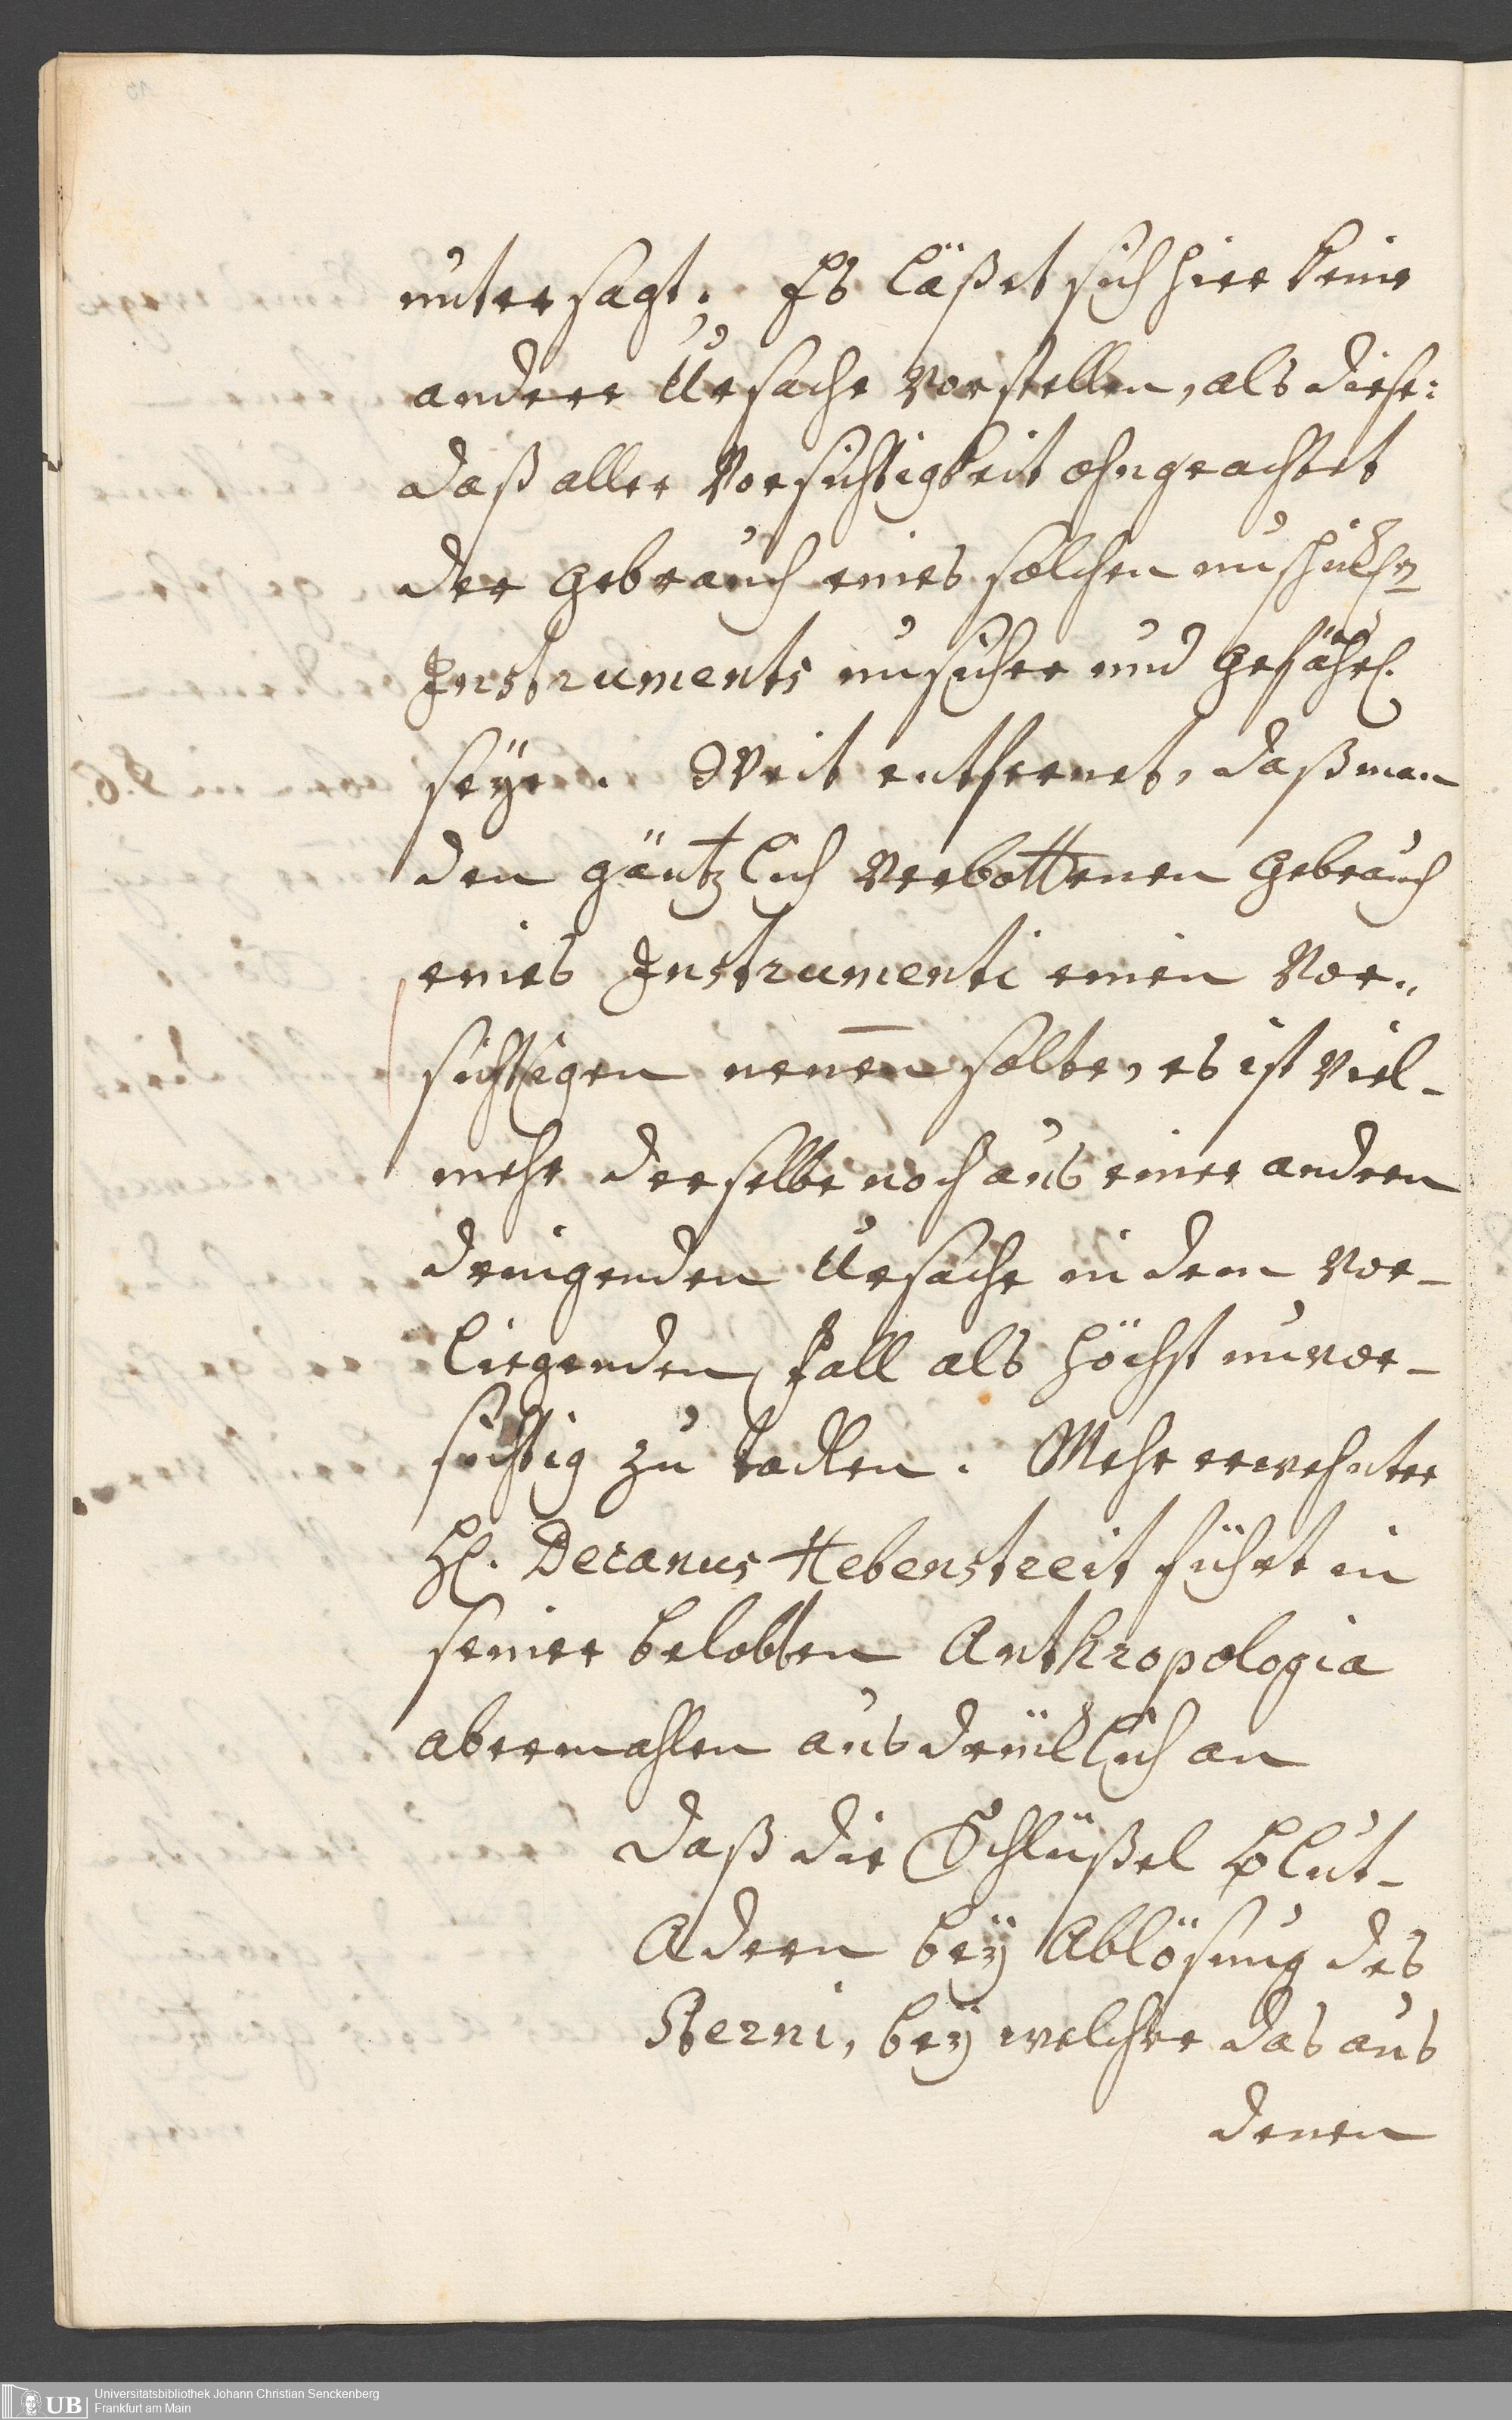 untersagt: Es läßet sich hier keine
andere Ursache vorstellen, als diese:
daß aller Vorsichtigkeit ohngeachtet
der Gebrauch eines solchen
Instruments unsicher und gefährl.
seÿe. Weit entfernet, daß man
den gäntzlich verbottenen Gebrauch
eines Instrumenti einen vor„
sichtigen nen̄en solte, es ist viel-
mehr derselbe noch aus einer andern
dringenden Ursache in dem vor-
liegenden Fall als höchst unvor-
sichtig zu tadlen. Mehr erwehnter
H. Decanus Hebenstreit führt in
seiner belobten Anthropologia
abermahlen ausdrüklich an
daß die Schlüßel Blut-
Adern beÿ Ablösung des
Sterni, beÿ welcher das aus
denen
Universitätsbibliothek Johann Christian Senckenberg
Frankfurt am Main
UB